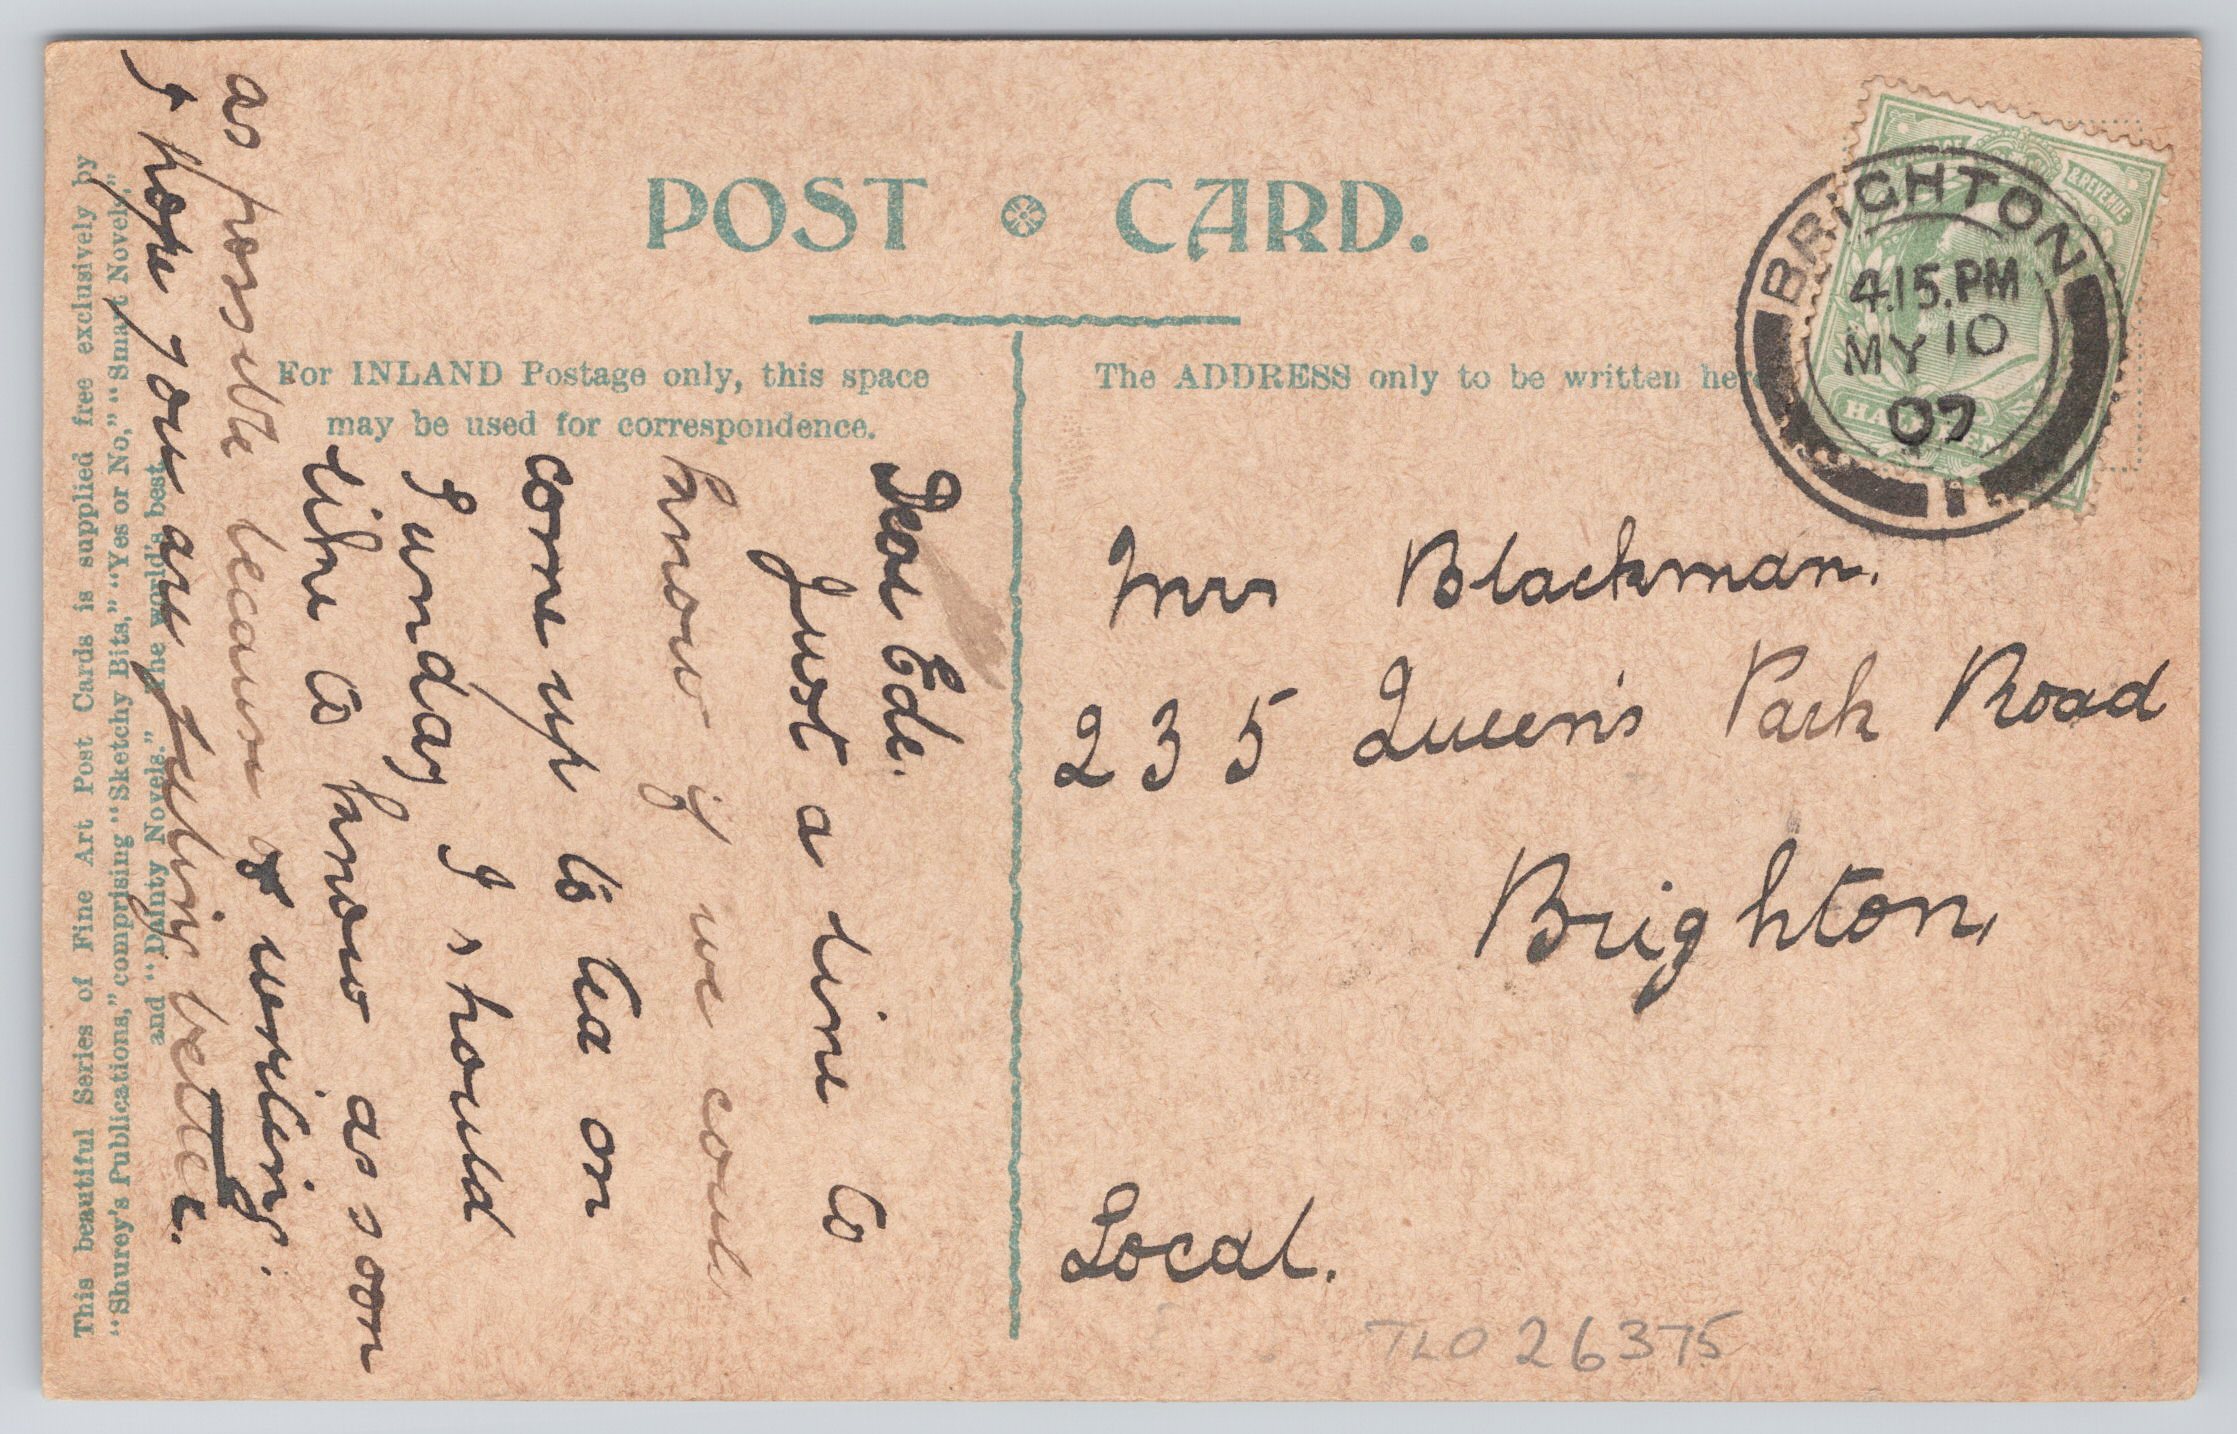 POST CARD.
For INLAND Postage only, this space
may be used for correspondence.
The ADDRESS only to be written here
BRIGHTON
4.15.PM
MY 10
07
1
& REVENUE
Mrs Blackman.
235 Queen's Park Road
Brighton,
Local.
TLO 26375
Dear Ede.
Just a line to
know if we could
come up to tea on
Sunday I should
like to know as soon
as possible because of writing.
I hope you are feeling better.
This beautiful Series of Fine Art Post Cards is supplied free exclusively by
"Shurey's Publications," comprising "Sketchy Bits," "Yes or No," "Smart Novels,"
and "Dainty Novels." The world's best